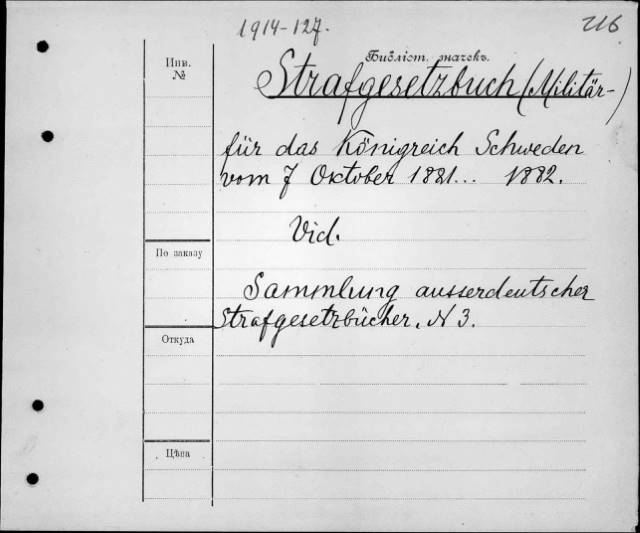 1914-127.
216
Библіот. значекъ.
Инв.
№
Strafgesetzbuch (Militär-)
für das Königreich Schweden
vom 7 Oktober 1881... 1882.
Vid.
По заказу
Sammlung ausserdeutscher
Strafgesetzbücher. N 3.
Откуда
Цѣна